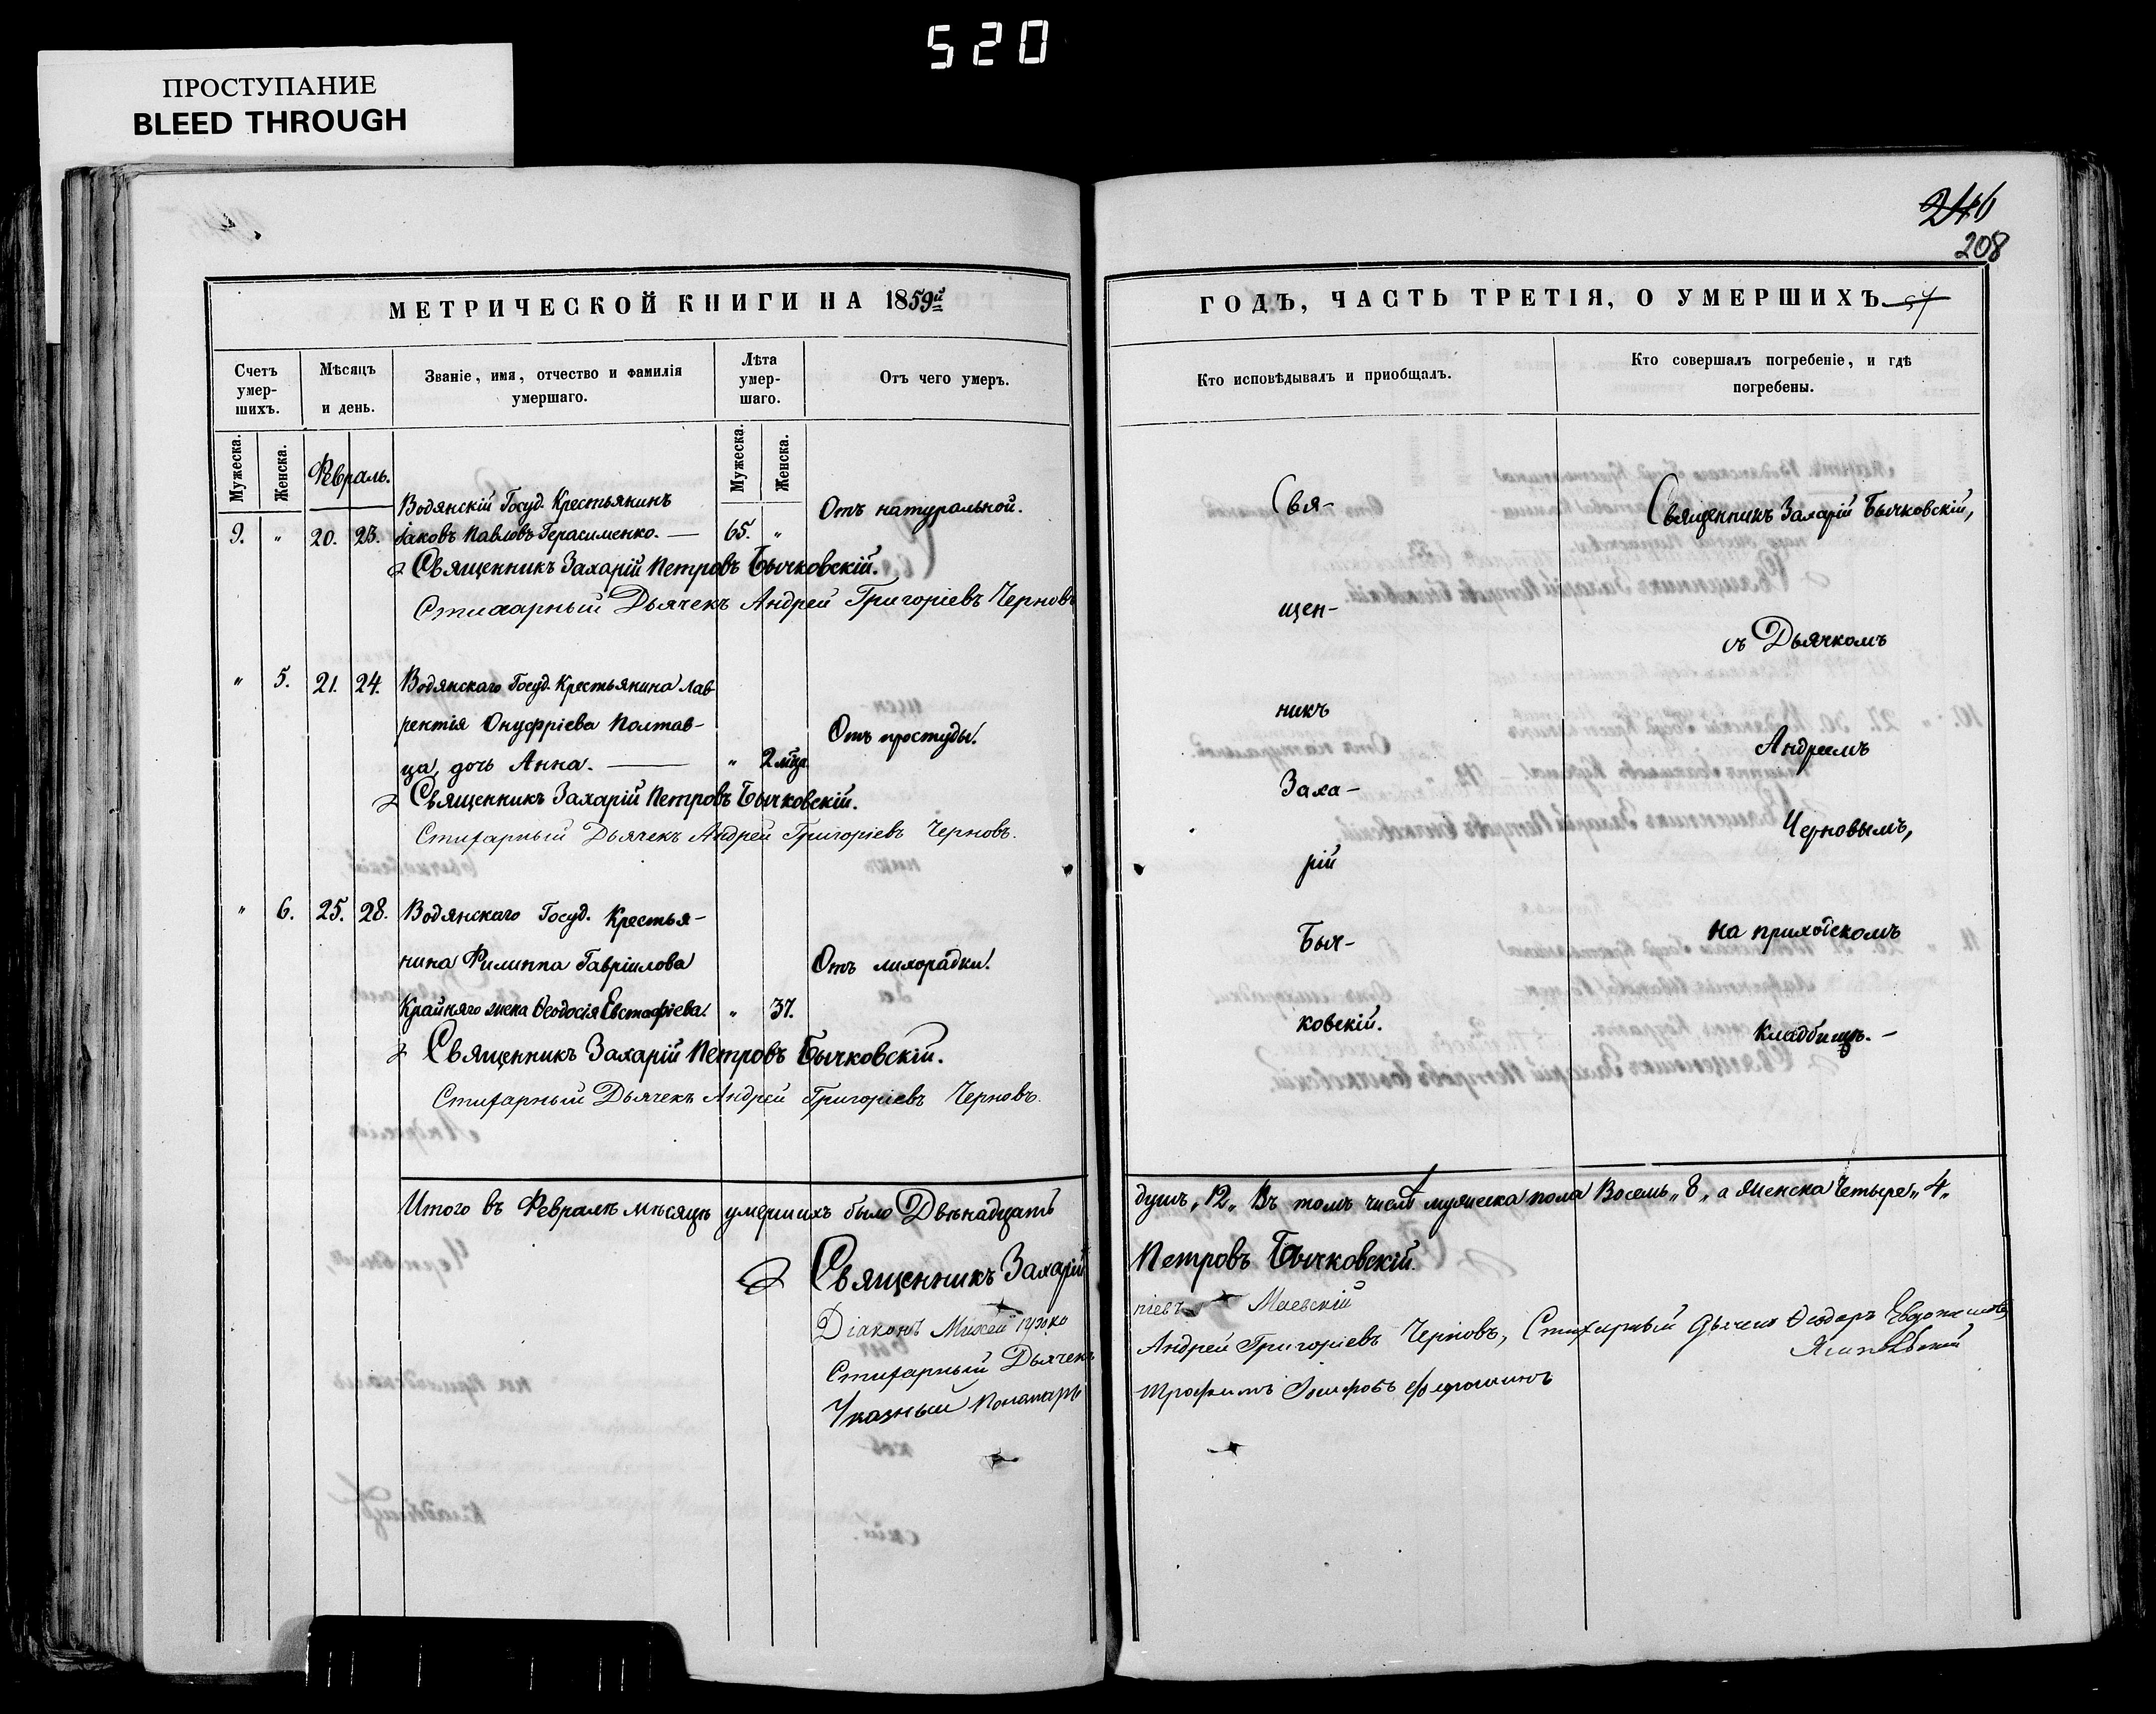 520
ПРОСТУПАНИЕ
BLEED THROUGH
246
208
МЕТРИЧЕСКОЙ КНИГИ НА 1859й
Счетъ умер-шихъ.
Мѣсяцъ и день.
Званіе, имя, отчество и фамилія умершаго.
Лѣта умер-шаго.
Отъ чего умеръ.
Мужеска.
Женска.
Мужеска.
Женска.
Февраль.
Водянскій Госуд. Крестьянинъ
9. " 20. 23. Іаковъ Павловъ Герасименко. — 65. " Отъ натуральной.
Священникъ Захарій Петровъ Бычковскій.
Стихарный Дьячекъ Андрей Григоріевъ Черновъ
" 5. 21. 24. Водянскаго Госуд. Крестьянина Лав-
рентія Онуфріева Полтав- Отъ простуды.
ца, дочь Анна. — " 2 мца
Священникъ Захарій Петровъ Бычковскій.
Стихарный Дьячекъ Андрей Григоріевъ Черновъ.
" 6. 25. 28. Водянскаго Госуд. Крестья-
нина Филиппа Гавріилова Отъ лихорадки.
Крайняго жена Ѳеодосія Евстафіева. " 37.
Священникъ Захарій Петровъ Бычковскій.
Стихарный Дьячекъ Андрей Григоріевъ Черновъ.
Итого въ Февралѣ мѣсяцѣ умершихъ было Двѣнадцать
Священникъ Захарій
Діаконъ Михей
Стихарный Дьячекъ
Указный Пономарь
ГОДЪ, ЧАСТЬ ТРЕТІЯ, О УМЕРШИХЪ
57
Кто исповѣдывалъ и пріобщалъ.
Кто совершалъ погребеніе, и гдѣ погребены.
Свя-
щен-
никъ
Заха-
рій
Быч-
ковскій.
Священникъ Захарій Бычковскій,
съ Дьячкомъ
Андреемъ
Черновымъ,
на приходскомъ
кладбищѣ. -
душъ „12„ Въ томъ числѣ мужеска пола Восемь „8„ а женска Четыре „4„
Петровъ Бычковскій.
Маевскій
Андрей Григоріевъ Черновъ, Стихарный Дьячекъ Ѳеодоръ
Трофимъ